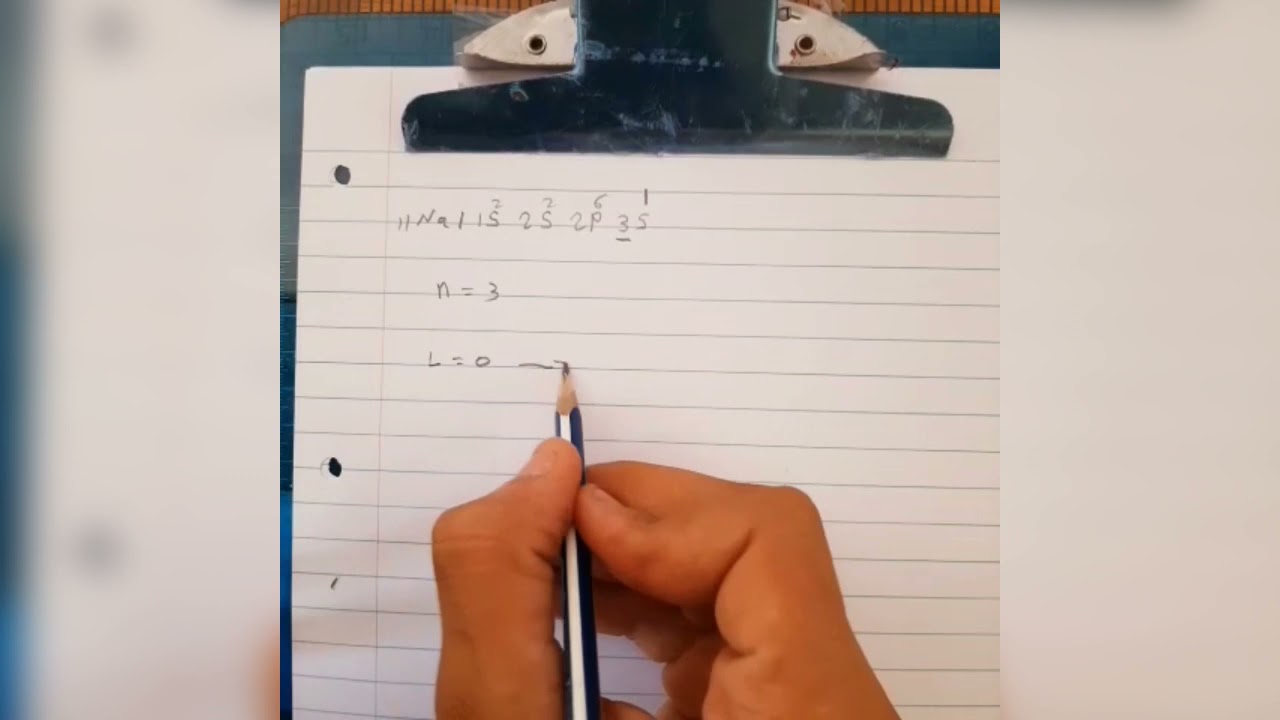 ₁₁Na | 1S² 2S² 2P⁶ 3S¹
n = 3
L = 0 →